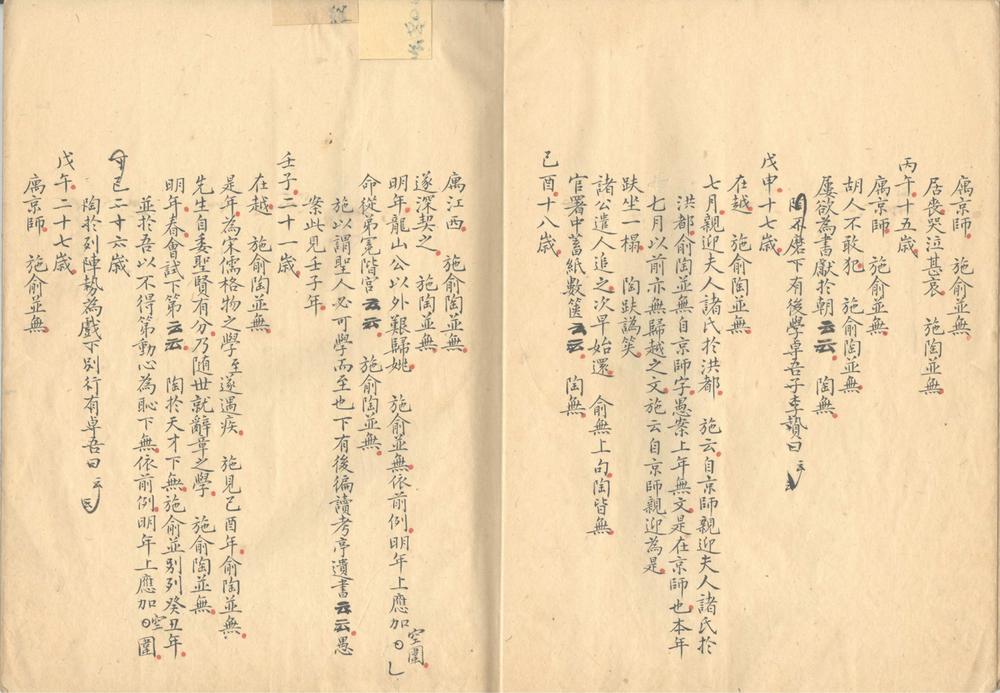 寓京師　施俞並無
居喪哭泣甚哀　施陶並無
丙午十五歲
寓京師　施俞陶並無
胡人不敢犯　施俞陶並無
屢欲為書獻於朝云云　陶無
陶下有後學卓吾子李贄曰云云
戊申十七歲
在越　施俞陶並無
七月親迎夫人諸氏於洪都　施云自京師親迎夫人諸氏於
洪都俞陶並無自京師字愚案上年無文是在京師也本年
七月以前亦無歸越之文施云自京師親迎為是
趺坐一榻　陶趺譌笑
諸公遣人追之次早始還　俞無上句陶皆無
官署中蓄紙數篋云云　陶無
己酉十八歲
寓江西　施俞陶並無
遂深契之　施陶並無
明年龍山公以外艱歸姚　施俞並無依前例明年上應加○空圍
命從弟冕階宮云云　施俞陶並無
施以謂聖人必可學而至也下有後徧讀考亭遺書云云愚
案此見壬子年
壬子二十一歲
在越　施俞陶並無
是年為宋儒格物之學至遂遇疾　施見己酉年俞陶並無
先生自委聖賢有分乃隨世就辭章之學　施俞陶並無
明年春會試下第云云　陶於天才下無施俞並別列癸丑年
並於吾以不得第動心為恥下無依前例明年上應加○空圍
巳二十六歲
陶於列陣勢為戲下別行有卓吾曰云云
戊午二十七歲
寓京師　施俞並無